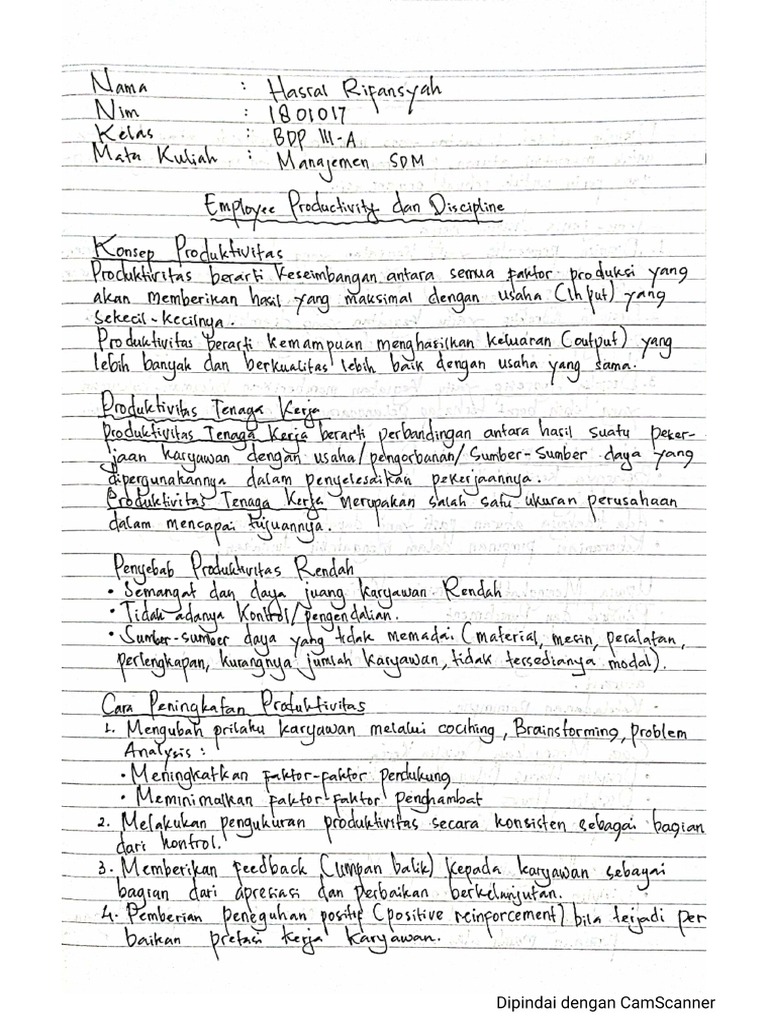 Nama : Hasral Rifansyah
Nim : 1801017
Kelas : BDP III-A
Mata Kuliah : Manajemen SDM
Employee Productivity dan Discipline
Konsep Produktivitas
Produktivitas berarti Keseimbangan antara semua faktor produksi yang
akan memberikan hasil yang maksimal dengan usaha (Input) yang
sekecil-kecilnya.
Produktivitas berarti Kemampuan menghasilkan Keluaran (output) yang
lebih banyak dan berkualitas lebih baik dengan usaha yang sama.
Produktivitas Tenaga Kerja
Produktivitas Tenaga Kerja berarti perbandingan antara hasil suatu peker-
jaan Karyawan dengan usaha/pengorbanan/Sumber-Sumber daya yang
dipergunakannya dalam penyelesaikan pekerjaannya.
Produktivitas Tenaga Kerja merupakan salah satu ukuran perusahaan
dalam mencapai tujuannya.
Penyebab Produktivitas Rendah
• Semangat dan daya juang Karyawan Rendah
• Tidak adanya Kontrol/pengendalian.
• Sumber-sumber daya yang tidak memadai (material, mesin, peralatan,
perlengkapan, kurangnya jumlah Karyawan, tidak tersedianya modal).
Cara Peningkatan Produktivitas
1. Mengubah prilaku Karyawan melalui cocihing, Brainstorming, problem
Analysis :
• Meningkatkan faktor-faktor pendukung
• Meminimalkan faktor-faktor penghambat
2. Melakukan pengukuran produktivitas secara konsisten sebagai bagian
dari kontrol.
3. Memberikan feedback (Umpan balik) kepada karyawan sebagai
bagian dari apresiasi dan perbaikan berkelanjutan.
4. Pemberian peneguhan positif (positive reinforcement) bila terjadi per
baikan pretasi kerja Karyawan.
Dipindai dengan CamScanner